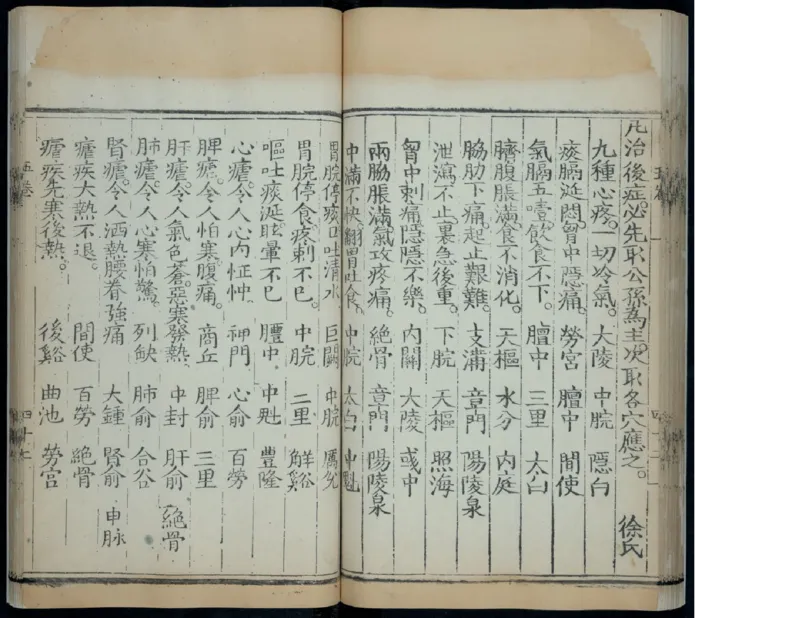 凡治後症必先取公孫為主次取各穴應之。 徐氏
九種心疼。一切冷氣。 大陵 中脘 隱白
痰膈涎悶。胷中隱痛。 勞宮 膻中 間使
氣膈五噎。飲食不下。 膻中 三里 太白
臍腹脹滿。食不消化。 天樞 水分 內庭
脇肋下痛。起止艱難。 支溝 章門 陽陵泉
泄瀉不止。裏急後重。 下脘 天樞 照海
胷中刺痛。隱隱不樂。 內關 大陵 彧中
兩脇脹滿。氣攻疼痛。 絶骨 章門 陽陵泉
中滿不快。翻胃吐食。 中脘 太白 中魁
胃脘停痰。口吐清水。 巨闕 中脘 厲兌
胃脘停食。疼刺不已。 中脘 三里 解谿
嘔吐痰涎。眩暈不已 膻中 中魁 豐隆
心瘧。令人心內怔忡 神門 心俞 百勞
脾瘧。令人怕寒腹痛。 商丘 脾俞 三里
肝瘧。令人氣色蒼。惡寒發熱。 中封 肝俞 絶骨
肺瘧。令人心寒怕驚。 列缺 肺俞 合谷
腎瘧。令人洒熱腰脊強痛 大鍾 腎俞 申脉
瘧疾大熱不退。 間使 百勞 絶骨
瘧疾先寒後熱。 後谿 曲池 勞宮
五卷 四十二